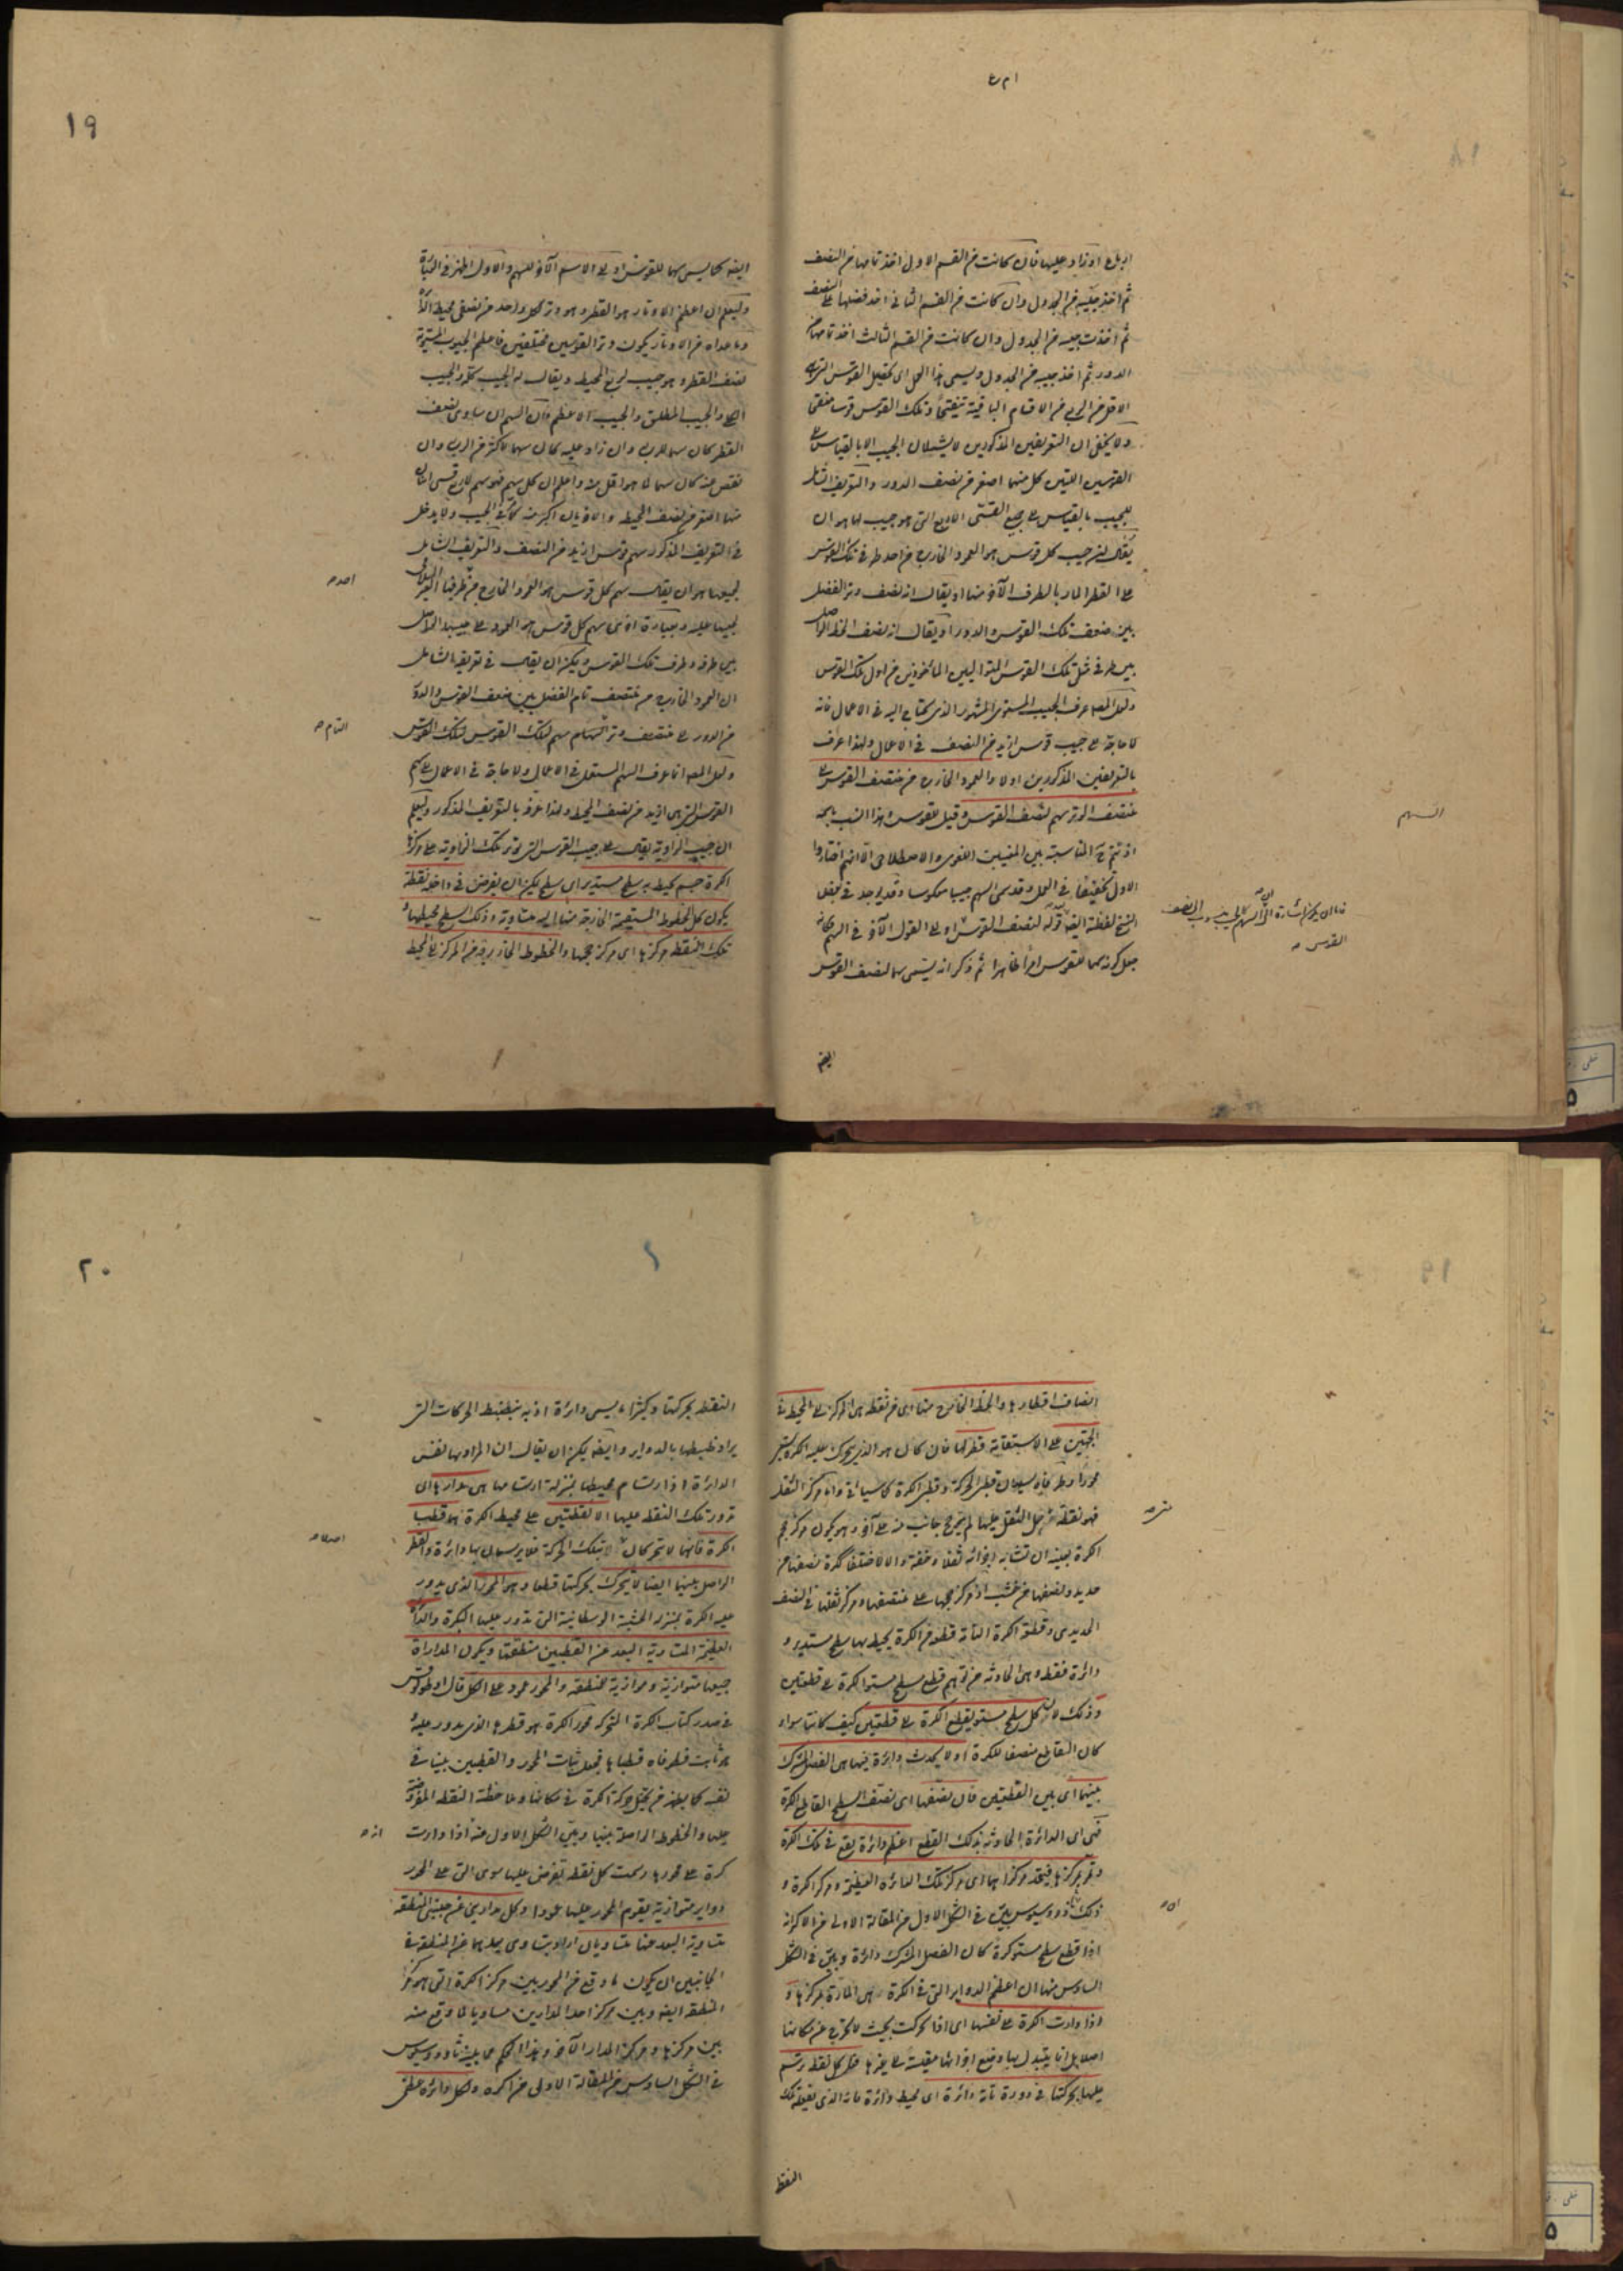 ١٩
او زاد عليها فان كانت من القسم الاول اخذ تمامها من النصف
ثم اخذ جيبه من الجدول وان كانت من القسم الثاني اخذ فضلها على النصف
ثم اخذت جيبه من الجدول وان كانت من القسم الثالث اخذ تمامها من
الدور ثم اخذ جيبه من الجدول ويسمى هذا العمل اى تحصيل القوس التى هى
الاقل من الربع من الاقسام الباقية تنقيحا وتلك القوس قوسا منقحا
ولا يخفى ان التعريفين المذكورين لا يشملان الجيب الا بالقياس الى
القوسين اللتين كل منهما اصغر من نصف الدور والتعريف الشامل
للجيب بالقياس الى جميع القسى الاربع التى هو جيب لها هو ان
يقال جيب كل قوس هو العمود الخارج من احد طرفى تلك القوس
على القطر المار بالطرف الآخر منها او يقال انه نصف وتر الفضل
بين ضعف تلك القوس والدور او يقال انه نصف الخط الواصل
بين طرفى مثلى تلك القوس المتواليين الماخوذين من اول تلك القوس
ولعل المص عرف الجيب المستوى المشهور الذى يحتاج اليه فى الاعمال فانه
لا حاجة الى جيب قوس ازيد من النصف فى الاعمال ولهذا عرف
بالتعريفين المذكورين اولا والعمود الخارج من منتصف القوس الى
منتصف الوتر سهم لنصف القوس وقيل للقوس وهذا انسب
السهم
المناسبة بين المعنيين اللغوى والاصطلاحى الا انهم اختاروا
الاول تخفيفا فى العمل وقد سمى السهم جيبا معكوسا وقد يوجد فى بعض
النسخ لفظة ايضا بعد قوله لنصف القوس او الى القول الآخر فى السهم
القوس
جعل كونه سهما للقوس امرا ظاهرا ثم ذكر انه يسمى سهما لنصف القوس
ايضا
ايضا كما يسمى سهما للقوس
وليعلم ان اعظم الاوتار هو القطر وهو وتر لكل واحد من نصفى محيط الدائرة
وما عداه من الاوتار يكون وتر القوسين مختلفين فاعظم الجيوب المستوية
نصف القطر وهو جيب لربع المحيط ويقال له الجيب كله والجيب
والجيب المطلق والجيب الاعظم فان السهم ان ساوى نصف
القطر كان سهما للربع وان زاد عليه كان سهما لاكثر من الربع وان
نقص عنه كان سهما لما هو اقل منه واعلم ان كل سهم فهو سهم لاربع قسى اثنتان
منها اصغر من نصف المحيط والاخريان اكبر منه كما فى الجيب ولا يدخل
فى التعريف المذكور سهم قوس ازيد من النصف والتعريف الشامل
لجميعها هو ان يقال سهم كل قوس هو العمود الخارج من طرفها
لجيبها عليه وبعبارة اخرى سهم كل قوس هو العمود على جيبها الواصل
بين طرفه وطرف تلك القوس ويمكن ان يقال فى تعريفه الشامل
ان العمود الخارج من منتصف تمام الفضل بين ضعف القوس والدور
من الدور الى منتصف وتر التمام سهم لتلك القوس
التمام
ولعل المص انما عرف السهم المستعمل فى الاعمال ولا حاجة فى الاعمال الى سهم
القوس التى هى ازيد من نصف المحيط ولهذا عرفه بالتعريف المذكور وليعلم
ان جيب الزاوية يقال على جيب القوس التى توتر تلك الزاوية على مركزها
الكرة جسم يحيط به سطح مستدير اى سطح يمكن ان يفرض فى داخله نقطة
يكون كل الخطوط المستقيمة الخارجة منها اليه متساوية وذلك السطح محيطها و
تلك النقطة مركزها اى مركز حجمها والخطوط الخارجة من المركز الى المحيط
٢٠
انصاف اقطارها والخط الخارج منها اى من نقطة هى المركز الى المحيط فى
الجهتين على الاستقامة قطر لها فان كان هو الذى يتحرك عليه الكرة يسمى
محورا وطرفاه يسميان قطبى الحركة وقطبى الكرة كما سيأتى واما مركز الثقل
فهو نقطة متى حمل الثقل عليها لم يترجح جانب منه على آخر وهو يكون مركز حجم
الكرة بعينه ان تشابه اجزائه ثقلا وخفة والا لاختلفا ككرة نصفها من
حديد ونصفها من خشب اذ مركز حجمها على منتصفها ومركز ثقلها فى النصف
الحديدى وقطعة الكرة التامة قطع من الكرة يحيط بها سطح مستدير و
دائرة فقط وهى الحادثة من توهم قطع سطح مستو الكرة الى قطعتين
وذلك لان كل سطح مستو يقطع الكرة الى قطعتين كيف كانتا سواء
كان القاطع منصفا للكرة او لا يحدث دائرة فيها هى الفصل المشترك
بينهما اى بين القطعتين فان نصفها اى نصف السطح القاطع الكرة
فهى اى الدائرة الحادثة بذلك القطع اعظم دائرة تقع فى تلك الكرة
وتمر بمركزها فيتحد مركزاهما اى مركز تلك الدائرة العظيمة ومركز الكرة و
ذلك لان ثاوذوسيوس بين فى الشكل الاول من المقالة الاولى من الاكر انه
اذا قطع سطح مستو كرة كان الفصل المشترك دائرة وبين فى الشكل
السادس منها ان اعظم الدواير التى فى الكرة هى المارة بمركزها و
اذا دارت الكرة على نفسها اى اذا تحركت بحيث لا تخرج عن مكانها
اصلا بل انما يتبدل بها وضع اجزائها مقيسة الى غيرها فكل نقطة ترسم
عليها بحركتها فى دورة تامة دائرة اى محيط دائرة فانه الذى تفعله تلك
النقط
النقطة بحركتها وكثيرا ما يسمى دائرة اذ به ينضبط الحركات التى
يراد ضبطها بالدواير وايضا يمكن ان يقال ان المراد بها نفس
الدائرة اذ ارتسام محيطها بمنزلة ارتسامها هى مدارها اى
تدور تلك النقطة عليها الا نقطتين على محيط الكرة هما قطبا
الكرة فانهما لا تتحركان بتلك الحركة فلا يرسمان بها دائرة والقطر
الواصل بينهما ايضا لا يتحرك بحركتها قطعا وهو المحور الذى يدور
عليه الكرة بمنزلة الخشبة الوسطانية التى تدور عليها البكرة والدائرة
العظيمة المتساوية البعد عن القطبين منطقتها ويكون المدارات
جميعها متوازية وموازية للمنطقة والمحور عمود على الكل قال اوطولوقس
فى صدر كتاب الكرة المتحركة محور الكرة هو قطرها الذى يدور عليه
ثابت فطرفاه قطباها فجعل ثبات المحور والقطبين بينا فى
نفسه كما يظهر من تخيل حركة الكرة فى مكانها وملاحظة النقطة المفروضة
عليها والخطوط الواصلة بينها وبين الشكل الاول منه انه اذا دارت
كرة على محورها رسمت كل نقطة تفرض عليها سوى التى على المحور
دواير متوازية يقوم المحور عليها عمودا وكل مدارين عن جنبتى المنطقة
متساوى البعد عنها متساويان اراد بتساوى بعدهما عن المنطقة فى
الجانبين ان يكون ما وقع من المحور بين مركز الكرة التى هو مركز
المنطقة ايضا وبين مركز احد المدارين مساويا لما وقع منه
بين مركزها ومركز المدار الآخر وهذا الحكم مما بينه ثاوذوسيوس
فى الشكل السادس من المقالة الاولى من اكره ولكل دائرة عظمى